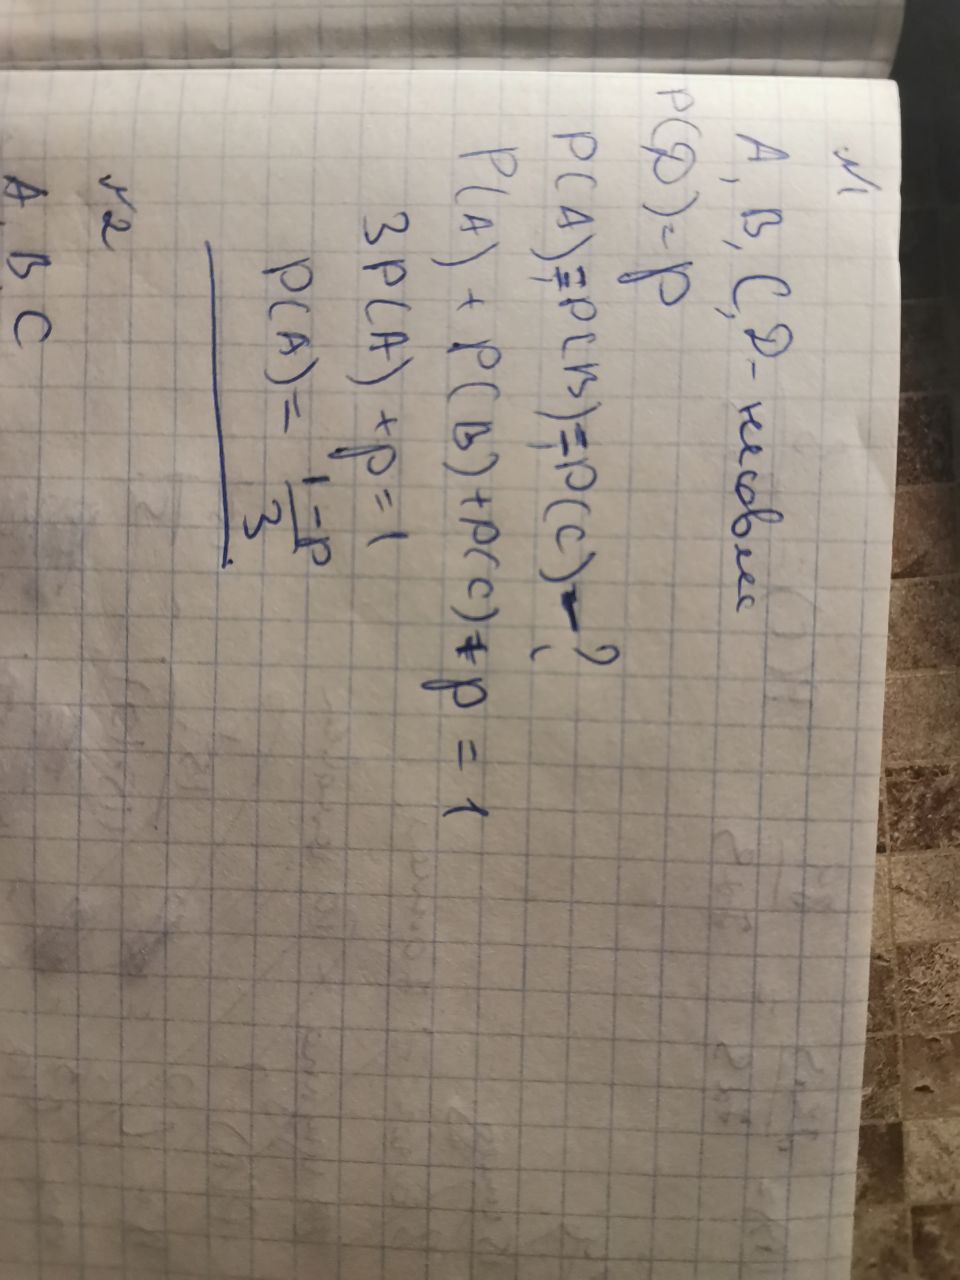 №1
A, B, C, D - несовм
P(D) = p
P(A) = P(B) = P(C) - ?
P(A) + P(B) + P(C) + p = 1
3P(A) + p = 1
P(A) = \frac{1-p}{3}
№2
A, B, C